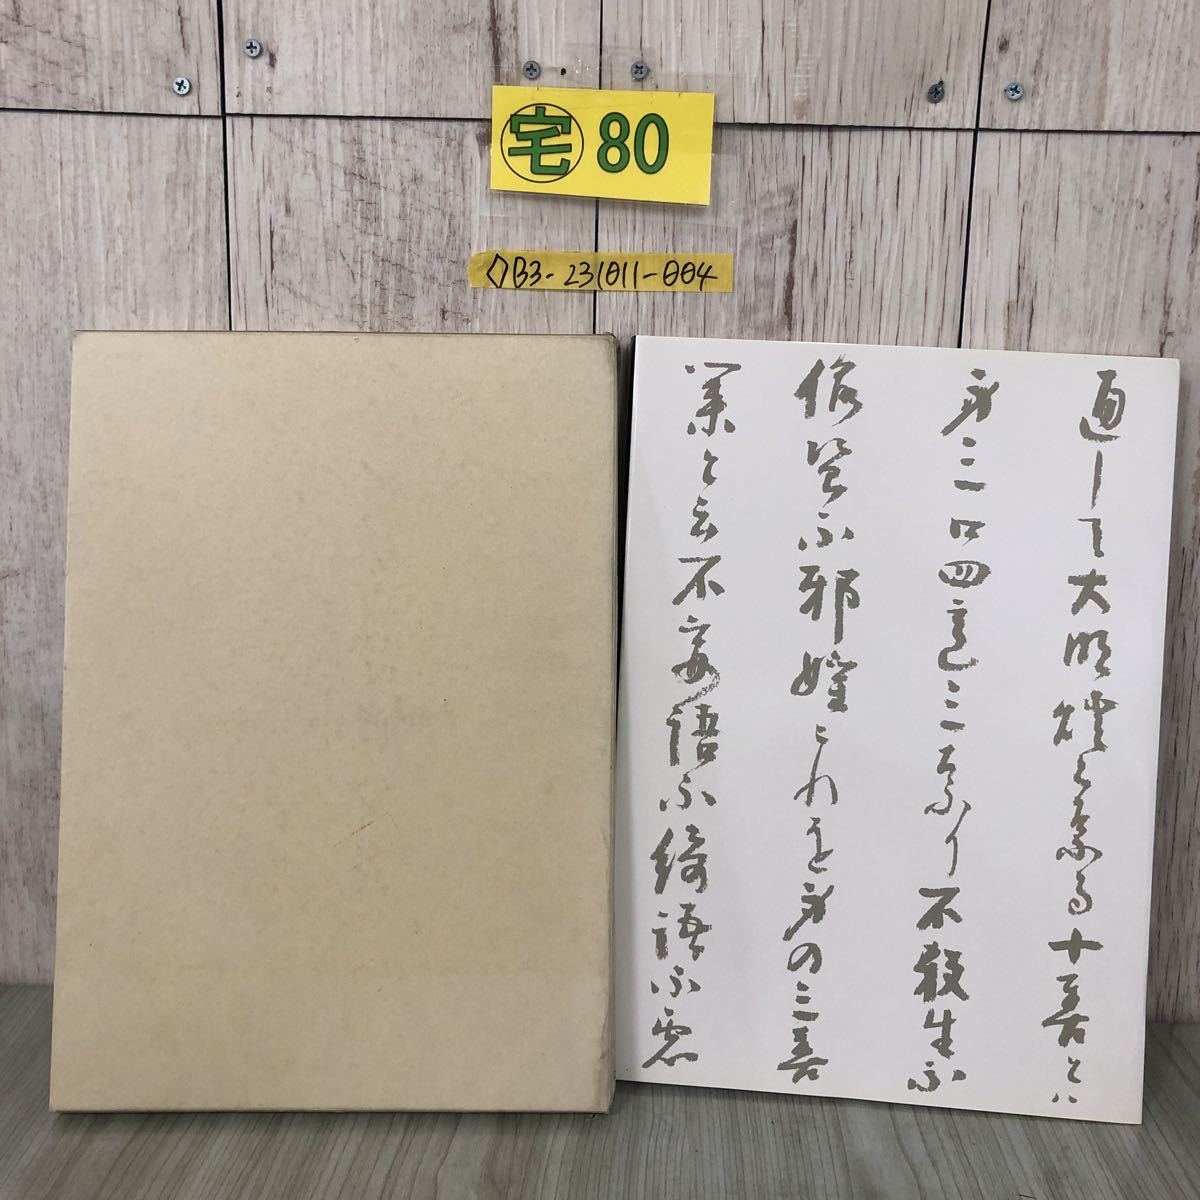 宅 80
◇B3-231011-004
通して大明燈となる十善とハ
身三口四意三なり不殺生不
偸盗不邪婬これを身の三善
業と云不妄語不綺語不悪